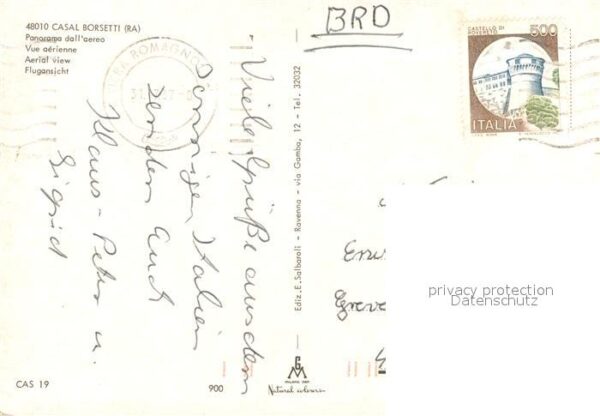 48010 CASAL BORSETTI (RA)
Panorama dall'aereo
Vue aérienne
Aerial view
Flugansicht
BRD
CASTELLO DI
ROVERETO
500
ITALIA
ROMAGNOLA
Viele Grüße aus dem
sonnigen Italien
senden Euch
Klaus-Peter u.
Sigrid
Ediz. E. Salbaroli - Ravenna - via Gamba, 12 - Tel. 32032
privacy protection
Datenschutz
CAS 19
900
GM
Natural colours